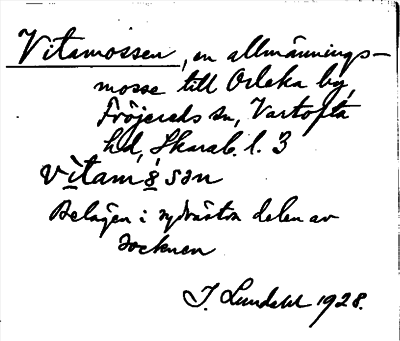 Vitamossen, en allmännings-
mosse till Orleka by,
Fröjereds sn, Vartofta
hd, Skarab. l. 3
vìtamåsən
Belägen i sydvästra delen av
socknen
J. Lundahl 1928.